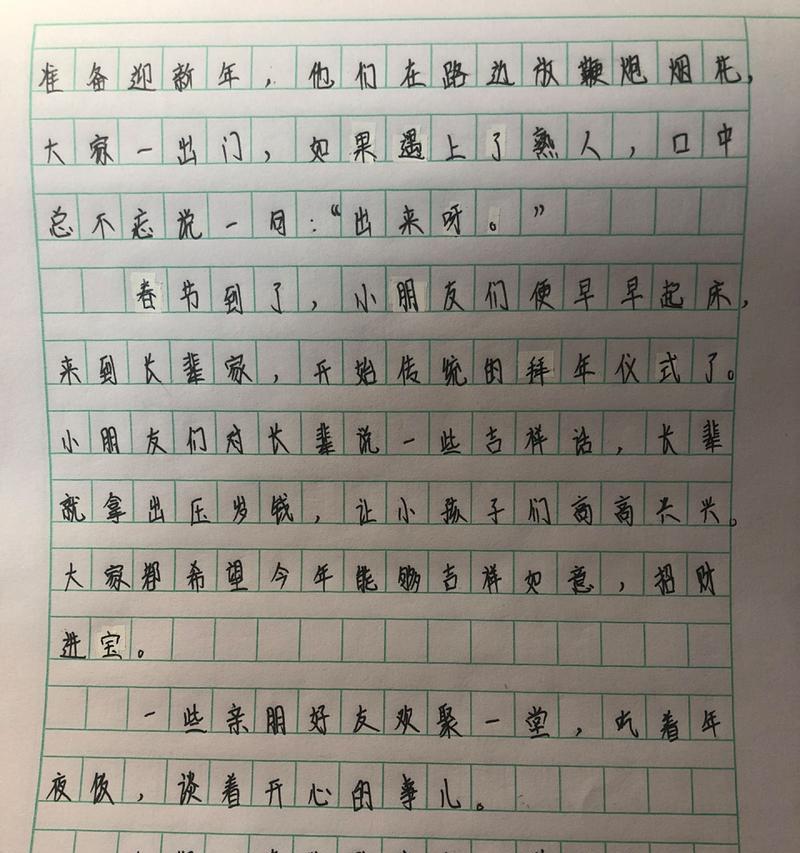 准备迎新年，他们在路边放鞭炮烟花，
大家一出门，如果遇上了熟人，口中
总不忘说一句：“出来呀。”
春节到了，小朋友们便早早起床，
来到长辈家，开始传统的拜年仪式了。
小朋友们对长辈说一些吉祥话，长辈
就拿出压岁钱，让小孩子们高高兴兴。
大家都希望今年能够吉祥如意，招财
进宝。
一些亲朋好友欢聚一堂，吃着年
夜饭，谈着开心的事儿。